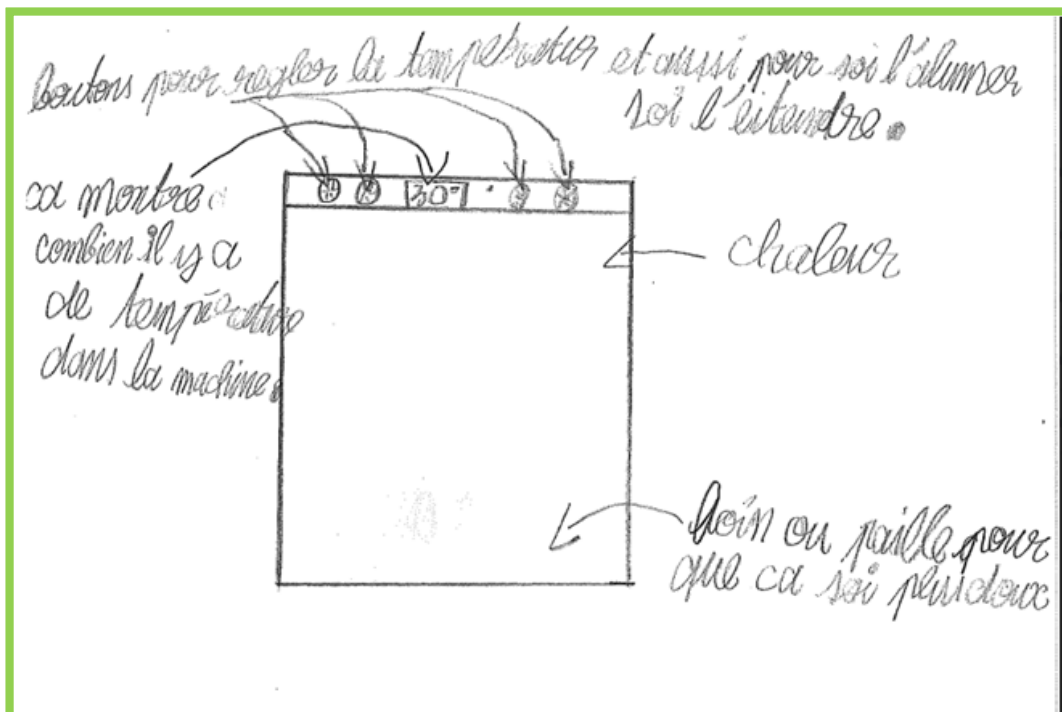 boutons pour regler la temperatur et aussi pour soi l'alumer
soi l'eitendre.
ca montre
combien il y a
de température
dans la machine.
30°
chaleur
foin ou paille pour
que ca soi plus doux